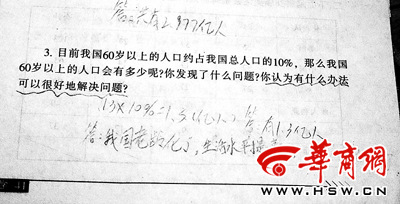 答:共有2.997亿人
3. 目前我国60岁以上的人口约占我国总人口的10%，那么我国
60岁以上的人口会有多少呢?你发现了什么问题?你认为有什么办法
可以很好地解决问题?
13×10%=1.3(亿人) 答:有1.3亿人
答:我国老龄化了,生活水平
41
华商网
WWW.HSW.CN